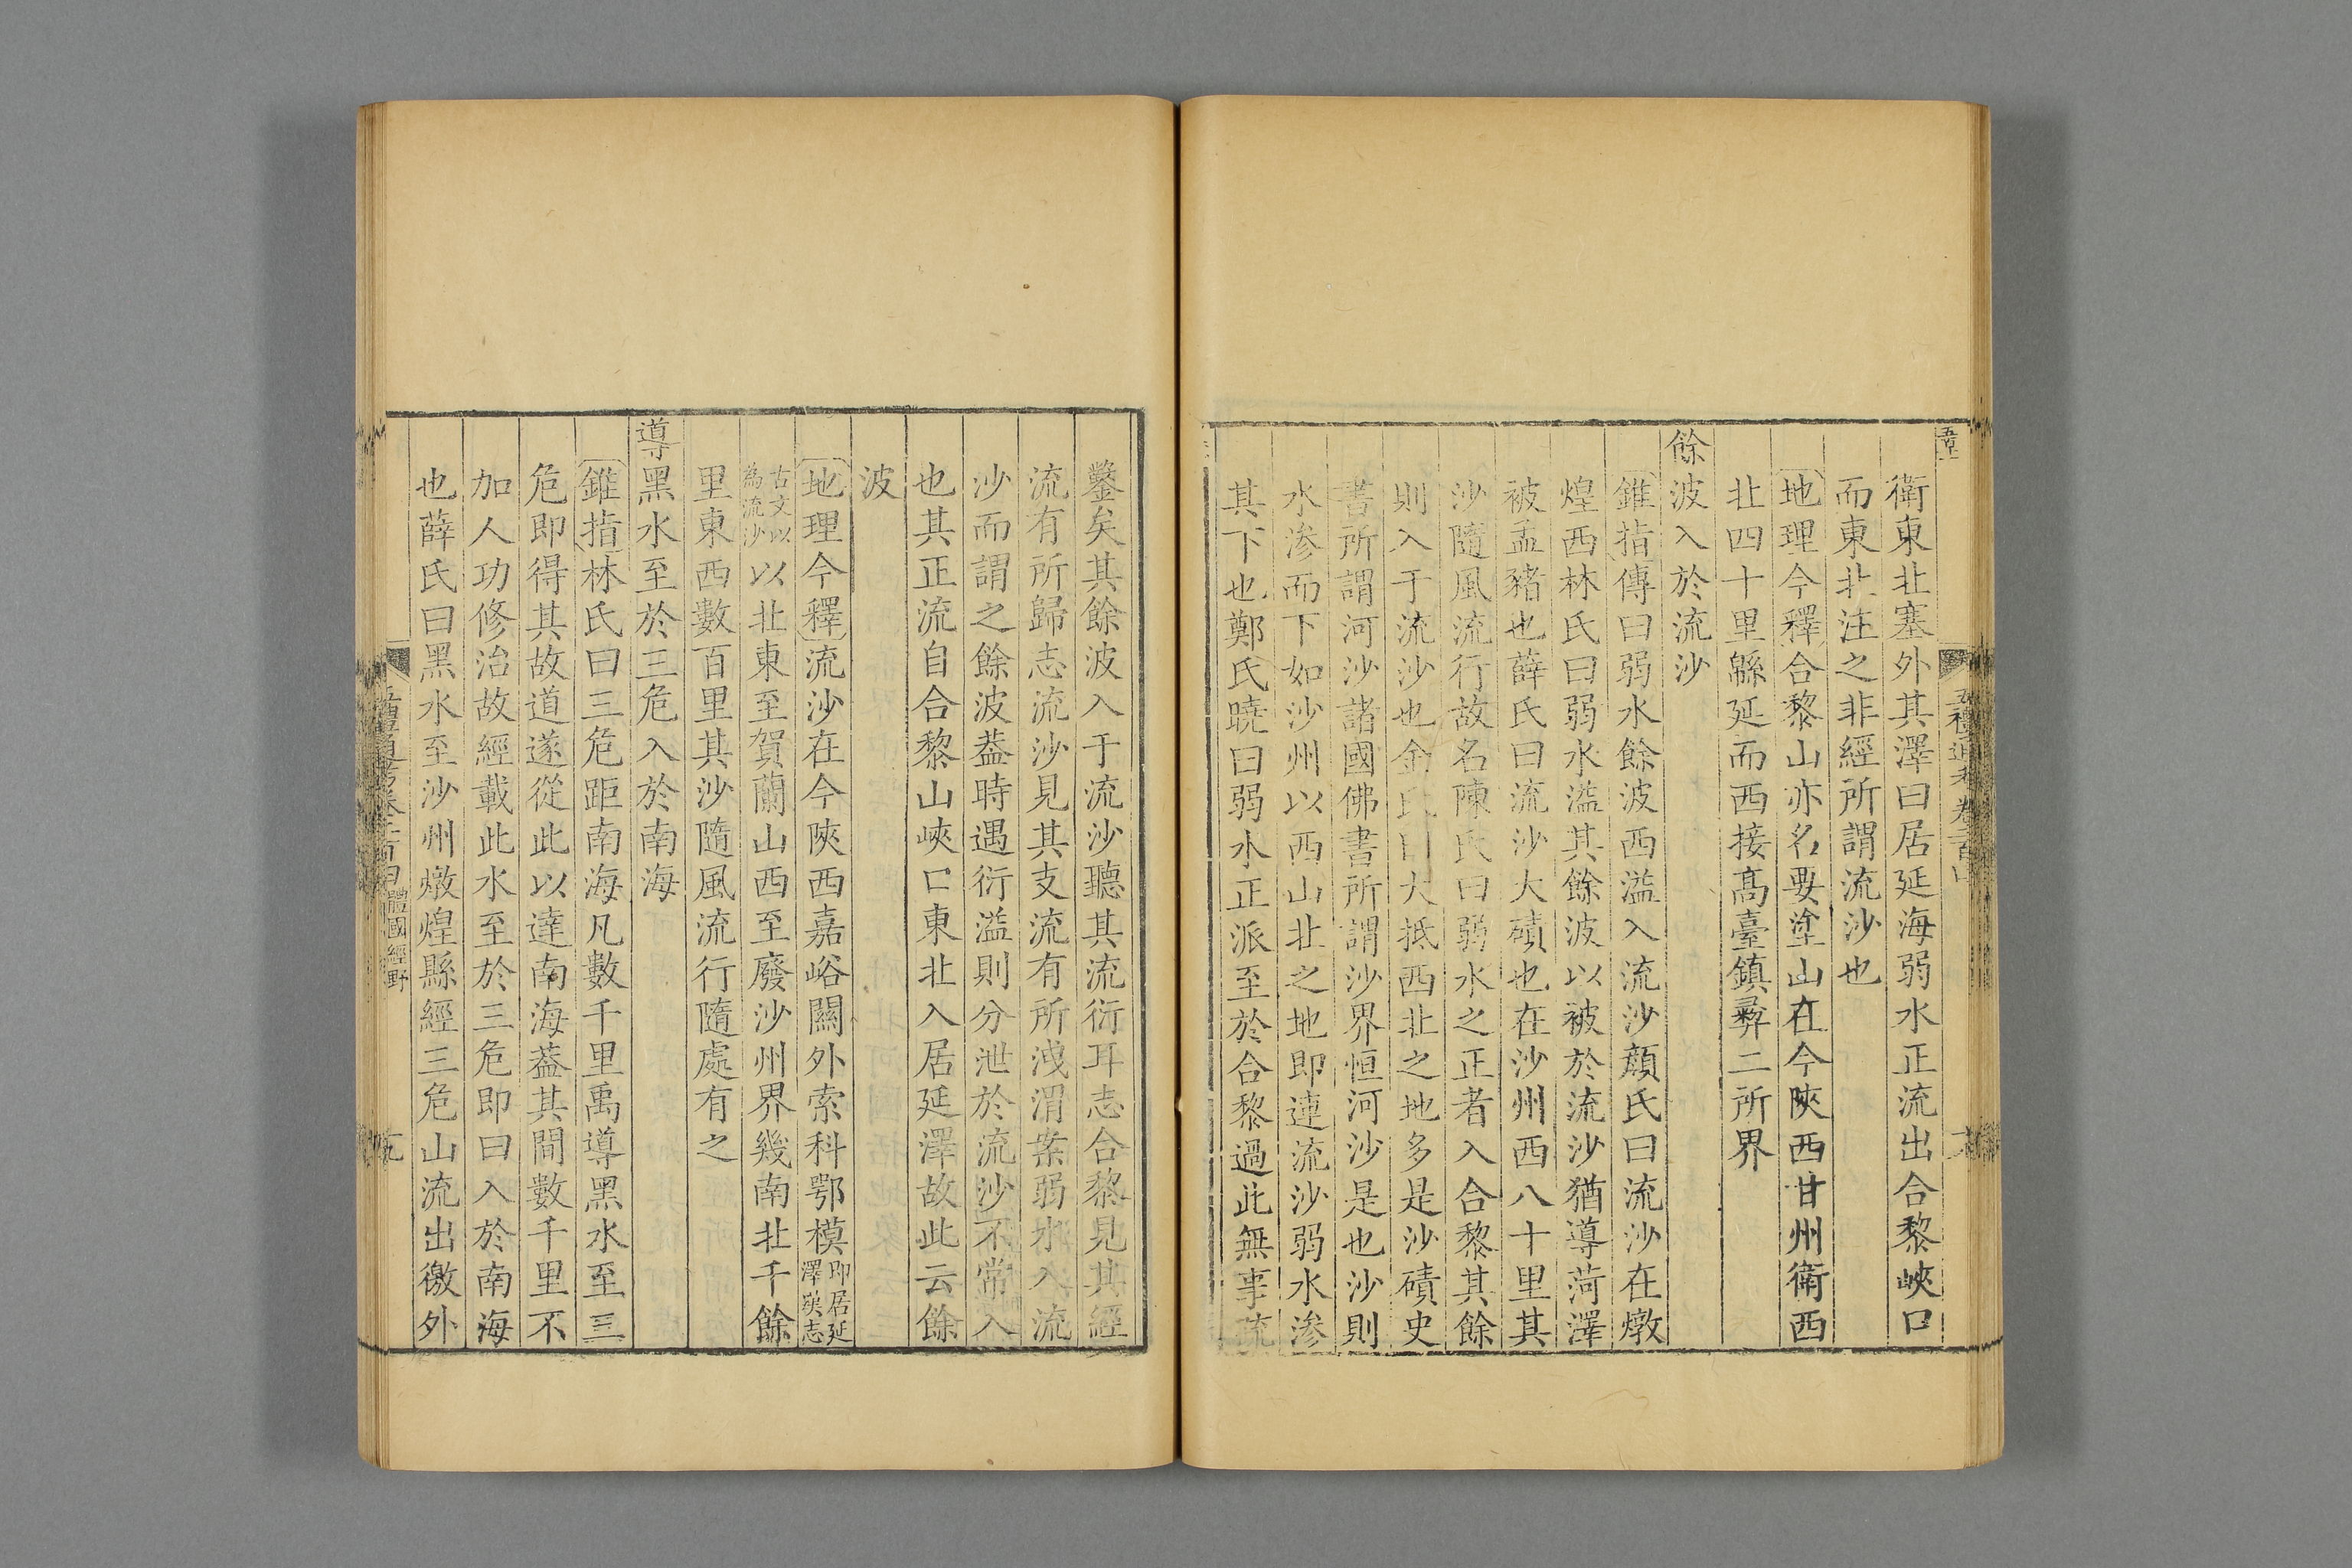 衛東北塞外其澤曰居延海弱水正流出合黎峽口
而東北注之非經所謂流沙也
地理今釋合黎山亦名要塗山在今陝西甘州衛西
北四十里緜延而西接髙臺鎮彛二所界
餘波入於流沙
錐指傳曰弱水餘波西溢入流沙顔氏曰流沙在燉
煌西林氏曰弱水溢其餘波以被於流沙猶導菏澤
被孟豬也薛氏曰流沙大磧也在沙州西八十里其
沙隨風流行故名陳氏曰弱水之正者入合黎其餘
則入于流沙也金氏曰大抵西北之地多是沙磧史
書所謂河沙諸國佛書所謂沙界恒河沙是也沙則
水滲而下如沙州以西山北之地即連流沙弱水滲
其下也鄭氏曉曰弱水正派至於合黎過此無事疏
鑿矣其餘波入于流沙聽其流衍耳志合黎見其經
流有所歸志流沙見其支流有所洩渭案弱水入流
沙而謂之餘波葢時遇衍溢則分泄於流沙不常入
也其正流自合黎山峽口東北入居延澤故此云餘
波
地理今釋流沙在今陝西嘉峪關外索科鄂模即居延澤漢志
古文以為流沙以北東至賀蘭山西至廢沙州界幾南北千餘
里東西數百里其沙隨風流行隨處有之
導黑水至於三危入於南海
錐指林氏曰三危距南海凡數千里禹導黑水至三
危即得其故道遂從此以達南海葢其間數千里不
加人功修治故經載此水至於三危即曰入於南海
也薛氏曰黑水至沙州燉煌縣經三危山流出徼外
五禮通考卷二百 體國經野